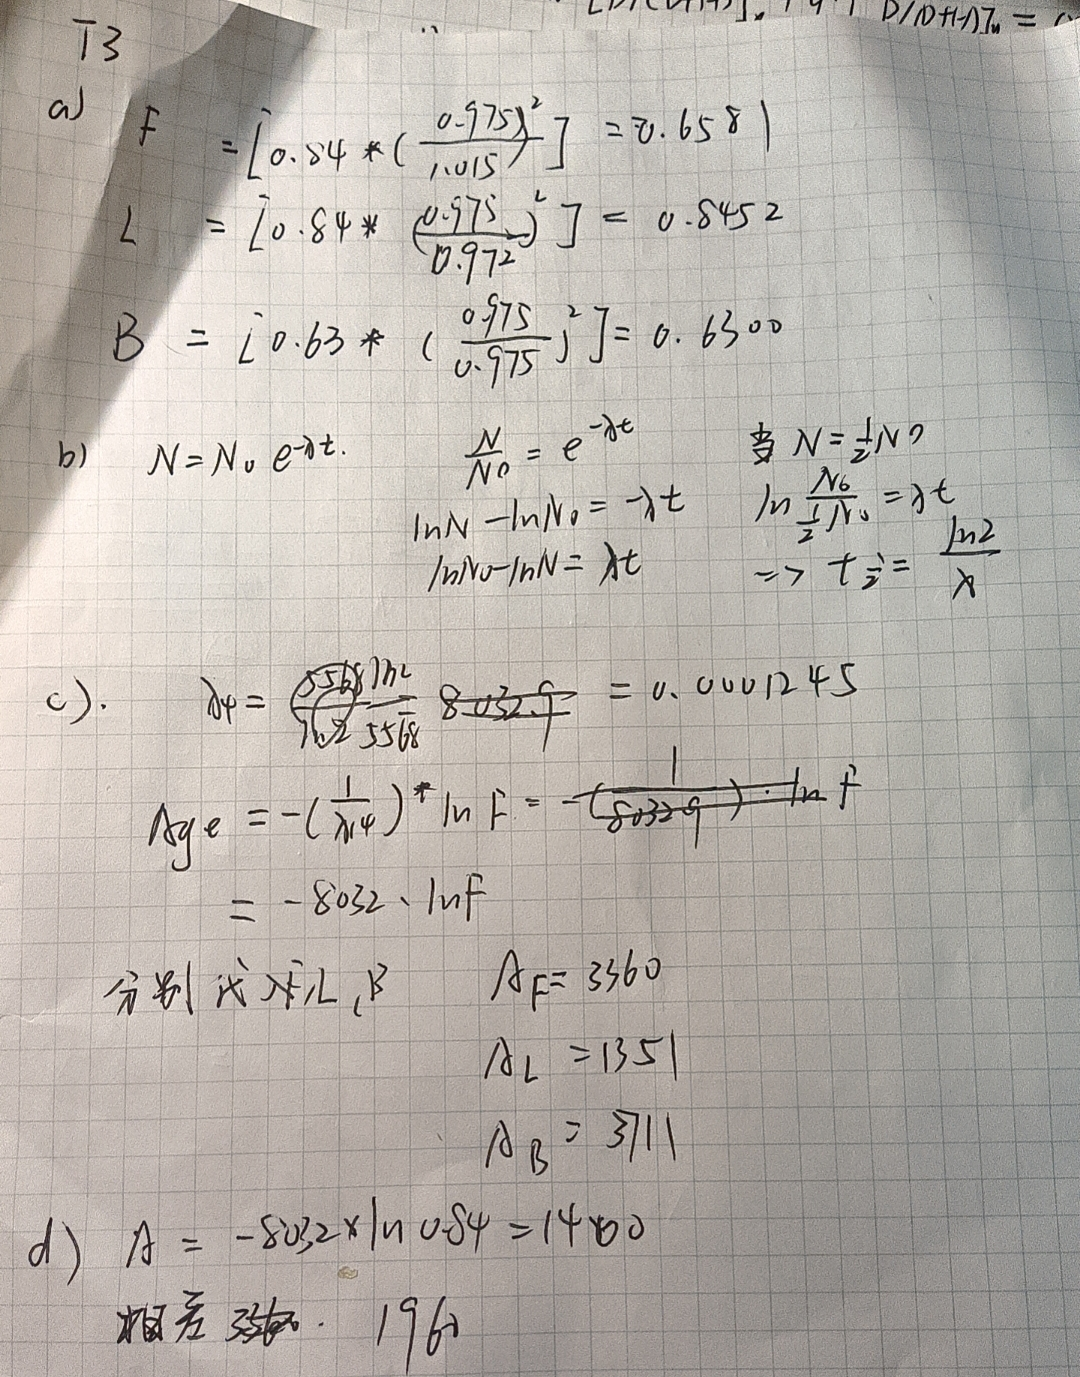 D/(D+H)]n = 
T3
a) F = [0.84 * (0.975/1.015)²] = 0.6581
L = [0.84 * (0.975/0.972)²] = 0.8452
B = [0.63 * (0.975/0.975)²] = 0.6300
b) N = N₀ e^-λt. N/N₀ = e^-λt 当 N = ½N₀
lnN - lnN₀ = -λt ln N₀/½N₀ = λt
lnN₀ - lnN = λt => t½ = ln2/λ
c). λ14 = ln2/5568 = 0.0001245
Age = -(1/λ14) * ln F = - ln F
= -8032 · lnF
分别代入F,L,B A_F = 3360
A_L = 1351
A_B = 3711
d) A = -8032 × ln 0.84 = 1400
相差 1960